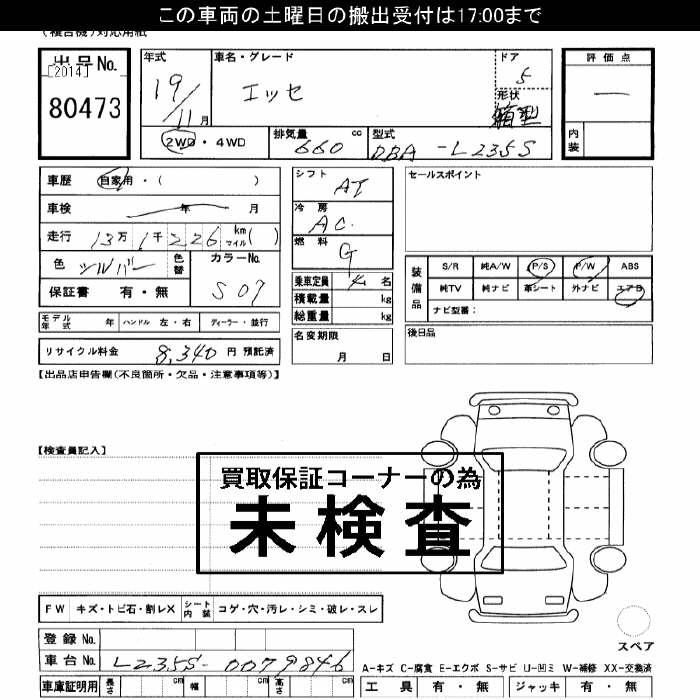 この車両の土曜日の搬出受付は17:00まで
(複合機)対応用紙
出品No. [2014] 80473
年式 19/11月
車名・グレード エッセ
ドア 5
形状 箱型
評価点 ―
内装
2WD・4WD
排気量 660 cc
型式 DBA-L235S
車歴 自家用・( )
車検 年 月
走行 13万1千226 km マイル( )
色 シルバー 色替 カラーNo. S07
保証書 有・無
シフト AT
冷房 AC.
燃料 G
乗車定員 4名
積載量 kg
総重量 kg
名変期限 月 日
セールスポイント
装備品 S/R 純A/W P/S P/W ABS
純TV 純ナビ 革シート 外ナビ エアB
ナビ型番:
後日品
モデル年式 年 ハンドル 左・右 ディーラー・並行
リサイクル料金 8,340 円 預託済
【出品店申告欄(不良箇所・欠品・注意事項等)】
【検査員記入】
買取保証コーナーの為
未検査
FW キズ・トビ石・割レX シート内装 コゲ・穴・汚レ・シミ・破レ・スレ
スペア
登録No.
車台No. L235S-0079846
A-キズ C-腐食 E-エクボ S-サビ U-凹ミ W-補修 XX-交換済
車庫証明用 長さ cm 幅 cm 高さ cm
工具 有・無 ジャッキ 有・無